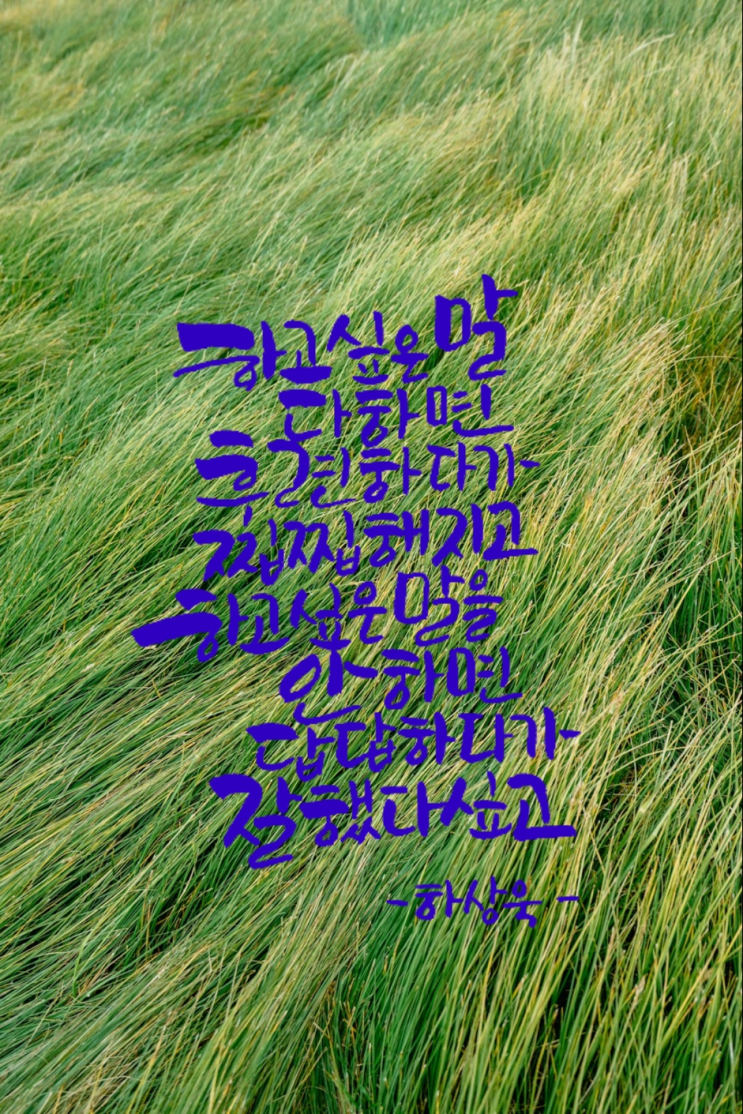 하고싶은말
다하면
후련하다가
찝찝해지고
하고싶은말을
안하면
답답하다가
잘했다싶고
-하상욱-